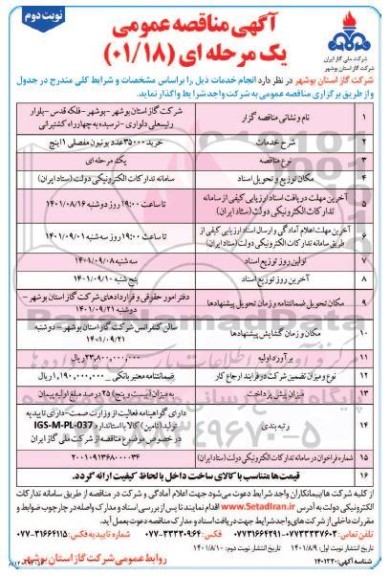 نوبت دوم
آگهی مناقصه عمومی
یک مرحله ای (۰۱/۱۸)
شرکت ملی گاز ایران
شرکت گاز استان بوشهر
شرکت گاز استان بوشهر در نظر دارد انجام خدمات ذیل را براساس مشخصات و شرایط کلی مندرج در جدول
و از طریق برگزاری مناقصه عمومی به شرکت واجد شرایط واگذار نماید.
۱ نام و نشانی مناقصه گزار شرکت گاز استان بوشهر - بوشهر - فلکه قدس - بلوار رئیسعلی دلواری - نرسیده به چهارراه کشتیرانی
۲ شرح خدمات خرید ۳۵۰۰۰ عدد یونیون مفصلی ۱ اینچ
۳ نوع مناقصه یک مرحله ای
۴ مکان توزیع و تحویل اسناد سامانه تدارکات الکترونیکی دولت (ستاد ایران)
۵ آخرین مهلت دریافت اسناد ارزیابی کیفی از سامانه تدارکات الکترونیکی دولت (ستاد ایران) تا ساعت ۱۹:۰۰ روز دوشنبه ۱۴۰۱/۰۸/۱۶
۶ آخرین مهلت اعلام آمادگی و ارسال اسناد ارزیابی کیفی از طریق سامانه تدارکات الکترونیکی دولت (ستاد ایران) تا ساعت ۱۹:۰۰ روز سه شنبه ۱۴۰۱/۰۹/۰۱
۷ اولین روز توزیع اسناد سه شنبه ۱۴۰۱/۰۹/۰۸
۸ آخرین روز توزیع اسناد پنج شنبه ۱۴۰۱/۰۹/۱۰
۹ مکان تحویل ضمانتنامه و زمان تحویل پیشنهادها دفتر امور حقوقی و قراردادهای شرکت گاز استان بوشهر - دوشنبه ۱۴۰۱/۰۹/۲۱
۱۰ مکان و زمان گشایش پیشنهادها سالن کنفرانس شرکت گاز استان بوشهر - دوشنبه ۱۴۰۱/۰۹/۲۱
۱۱ برآورد اولیه ۲۳,۸۰۰,۰۰۰,۰۰۰ ریال
۱۲ نوع و میزان تضمین شرکت در فرایند ارجاع کار ضمانتنامه معتبر بانکی ۱,۱۹۰,۰۰۰,۰۰۰ ریال
۱۳ میزان پیش پرداخت به میزان (بیست و پنج) ۲۵ درصد مبلغ اولیه پیمان
۱۴ رتبه بندی دارای گواهینامه فعالیت از وزارت صمت - دارای تاییدیه تولید (تامین) کالا با استاندارد IGS-M-PL-037 در خصوص موضوع مناقصه از شرکت ملی گاز ایران
۱۵ شماره فراخوان در سامانه تدارکات الکترونیکی دولت (ستاد ایران) ۲۰۰۱۰۹۱۳۶۸۰۰۰۰۳۶
۱۶ قیمت‌ها متناسب با کالای ساخت داخل با لحاظ کیفیت ارائه گردد.
از کلیه شرکت ها/پیمانکاران واجد شرایط دعوت می‌شود جهت اعلام آمادگی و شرکت در مناقصه از طریق سامانه تدارکات
الکترونیکی دولت به آدرس www.SetadIran.ir اقدام نمایند تا پس از بررسی اسناد و مدارک واصله و طی مراحل
مقررات داخلی از شرکت های واجد شرایط جهت دریافت اسناد و مدارک مناقصه دعوت بعمل آید.
تاریخ انتشار نوبت اول: ۱۴۰۱/۸/۹ تاریخ انتشار نوبت دوم: ۱۴۰۱/۸/۱۰
روابط عمومی شرکت گاز استان بوشهر